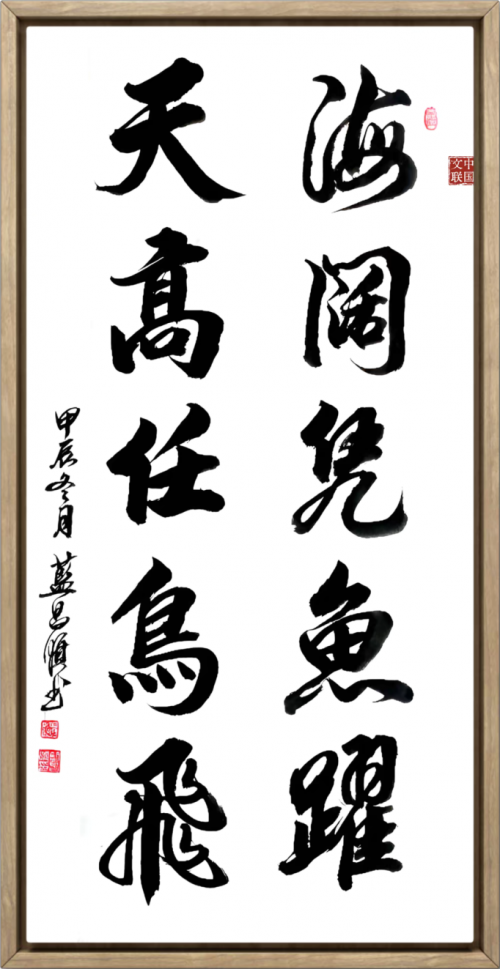 海阔凭魚躍
天高任鳥飛
甲辰冬月 藍昌順书
中国
文联